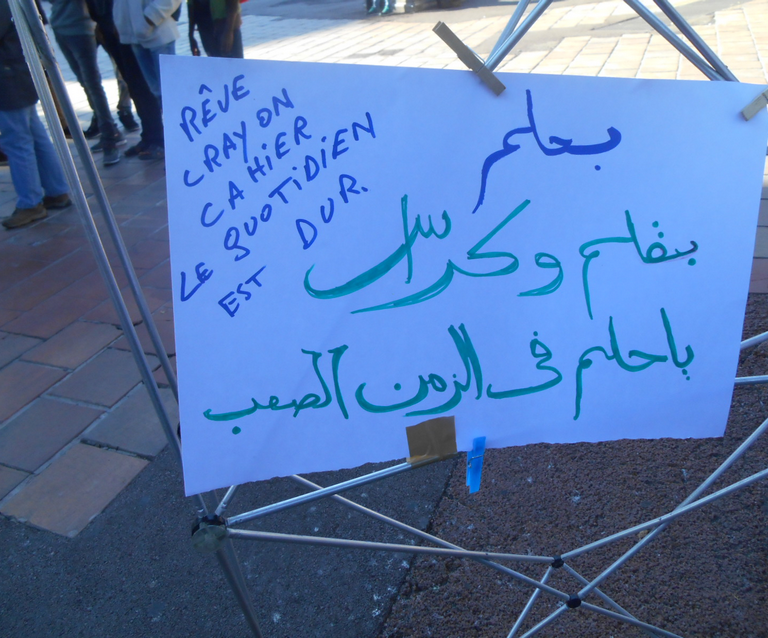 RÊVE
CRAYON
CAHIER
LE QUOTIDIEN
EST DUR.
بحلم
بقلم وكراس
ياحلم في الزمن الصعب